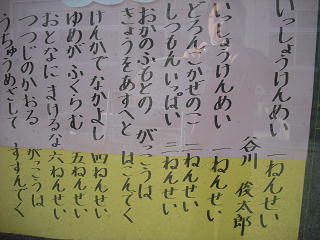 いっしょうけんめい 一ねんせい
谷川 俊太郎
いっしょうけんめい 一ねんせい
どろんこかぜのこ 二ねんせい
しつもんいっぱい 三ねんせい
おかのふもとの がっこうは
きょうをあすへと はこんでく
けんかでなかよし 四ねんせい
ゆめがふくらむ 五ねんせい
おとなにまけるな 六ねんせい
つつじのかおる がっこうは
うちゅうめざして すすんでく